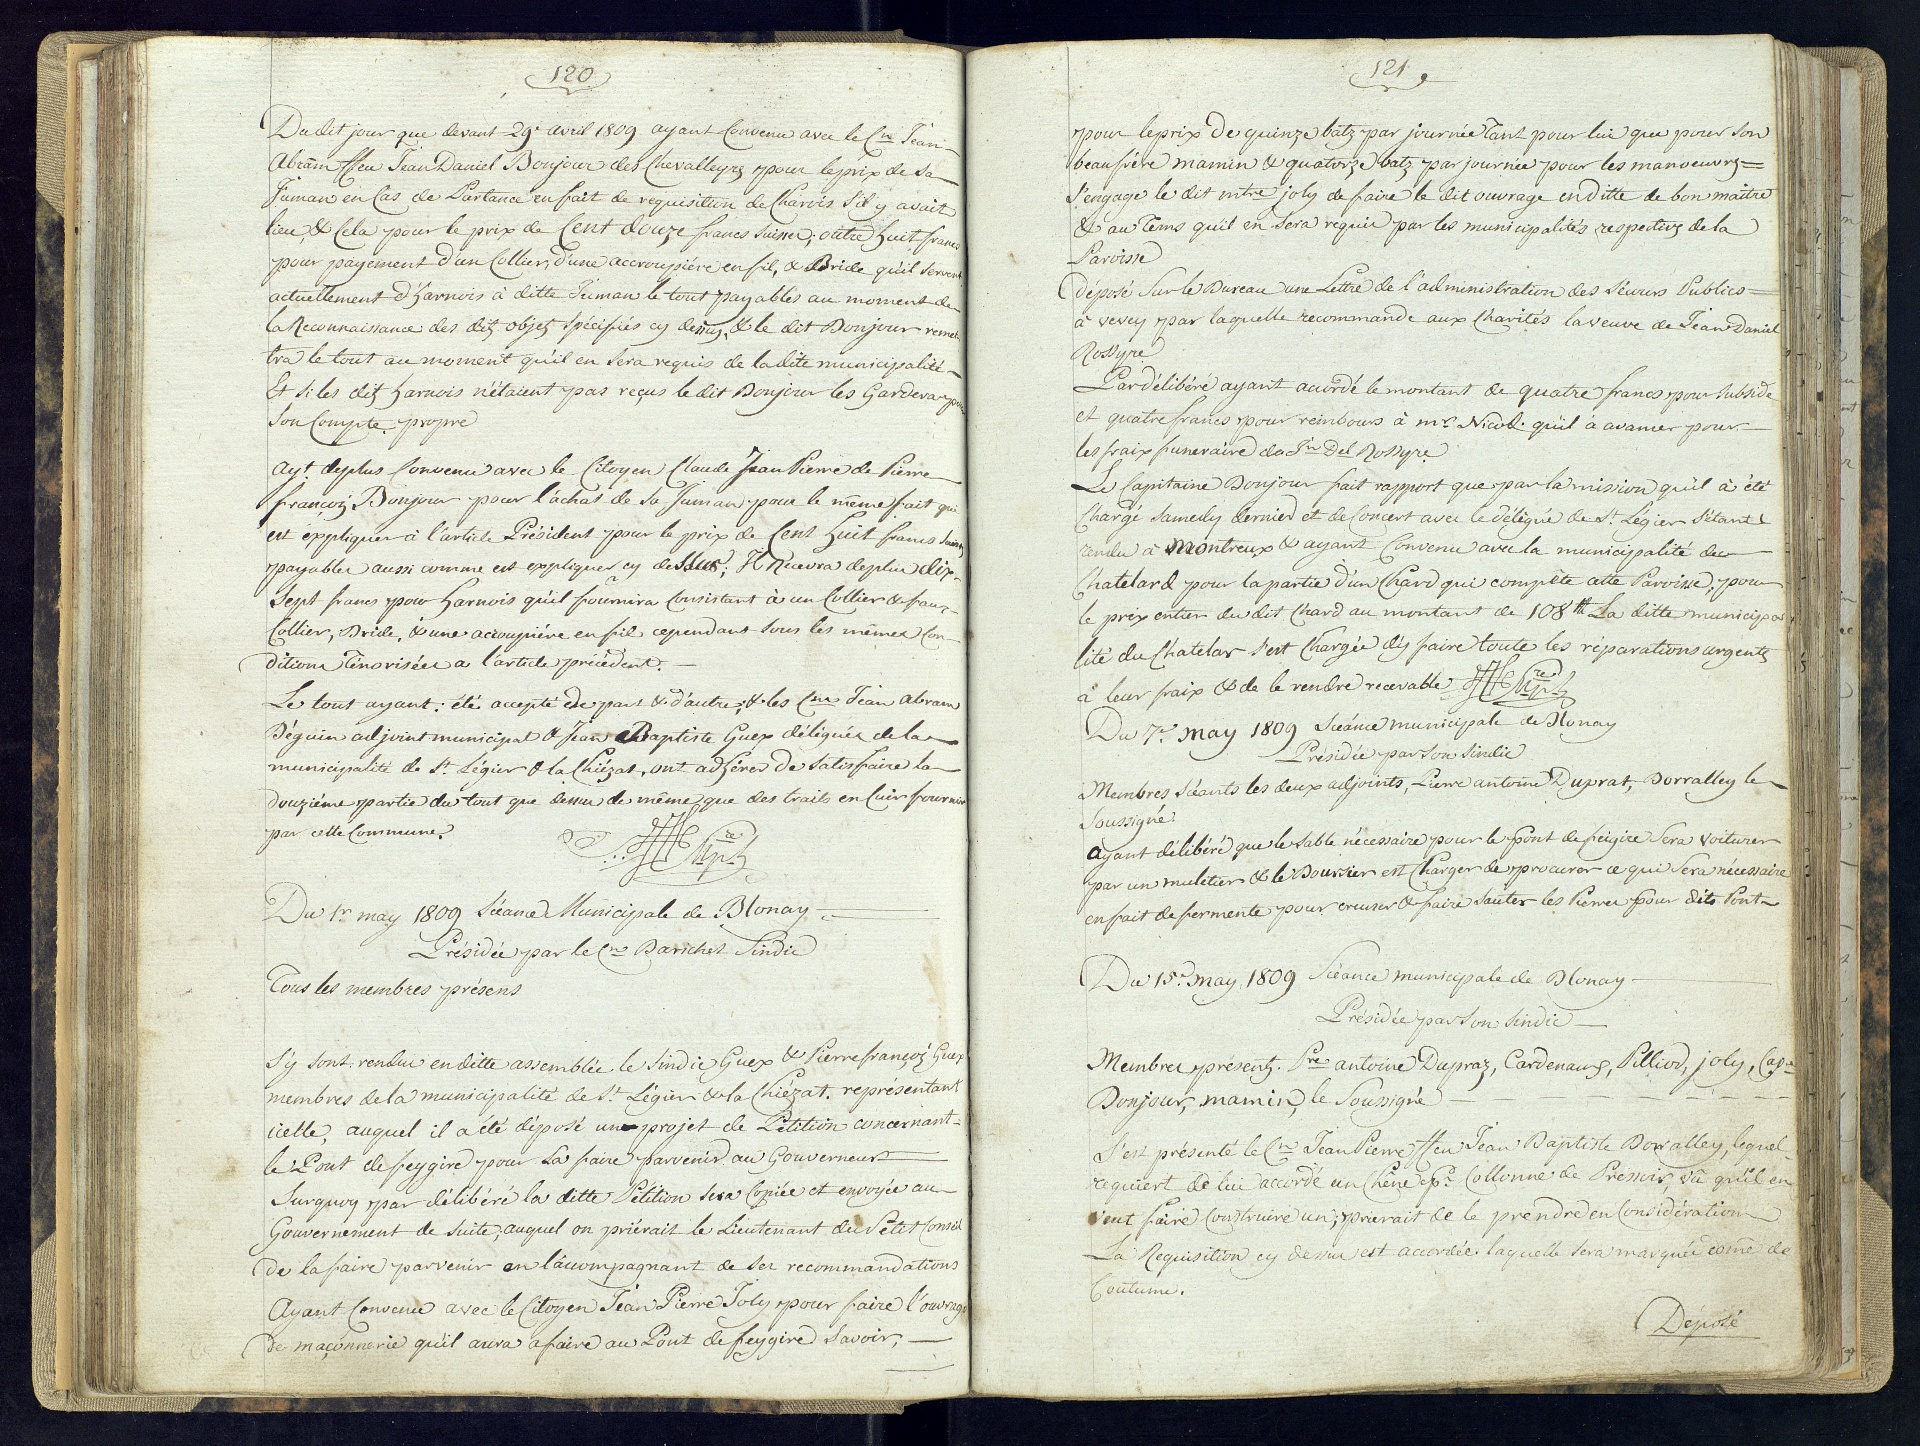 120
Du dit jour que devant 29e avril 1809 ayant Convenu avec le Cen Jean
Abram ffeu Jean Daniel Bonjour des Chevalleyres pour le prix de sa
Jûman en Cas de Partance en fait de requisition de Charois s'il y avait
lieu, & Cela pour le prix de Cent douze francs suisses; outre huit francs
pour payement d'un Collier, d'une accroupière en fil, & Bride qu'il servent
actuellement d'harnois à ditte Jûman le tout payables au moment de
la Reconnaissance des dits objets spécifiés cy dessus, & le dit Bonjour remet
tra le tout au moment qu'il en sera requis de la dite municipalité
Et si les dits harnois n'étaient pas reçus le dit Bonjour les Gardera pour
son Compte propre
ayt. deplus Convenu avec le Citoyen Claude Jean Pierre de Pierre
françois Bonjour pour l'achat de sa Juman pour le même fait qui
est expliquer à l'article Président pour le prix de Cent huit francs suisses
payables aussi comme est expliquer cy dessus; Il Recevra deplus dix-
sept francs pour harnois qu'il fournira Consistant à un Collier & faux-
Collier, Bride, & une accroupière en fil cependant sous les mêmes Con-
ditions Ténorisées a l'article précédent.
Le tout ayant: été accepté de part & d'autre; & les Cens Jean Abram
Béguin adjoint municipal & Jean Baptiste Guex délégués de la
municipalité de St. Légier & la Chiézaz, ont adhérés de satisfaire la
douzième partie du tout que dessus de même que des traits en Cuir fournir
par cette Commune.
Du 1r may 1809 Séance Municipale de Blonay
Présidée par le Cen Barichet Sindic
Tous les membres présens
S'y sont rendus en ditte assemblée le Sindic Guex & Pierre françois Guex
membres de la municipalité de St. Légier & la Chiézaz. représentant
icelle, auquel il a été déposé un projet de Pétition concernant
le Pont de feygire pour la faire parvenir au Gouvernement
Surquoy par délibéré la ditte Pétition sera Copiée et envoyée au
Gouvernement de suite; auquel on priérait le Lieutenant du Petit Conseil
de la faire parvenir en l'accompagnant de ses recommandations
Ayant Convenu avec le Citoyen Jean Pierre Joly pour faire l'ouvrage
de maçonnerie qu'il aura a faire au Pont de feygire Savoir,
121
pour le prix de quinze batz par journée Tant pour lui que pour son
beaufrère mamin & quatorze batz par journée pour les manoeuvres
s'engage le dit mtre joly de faire le dit ouvrage en ditte de bon maître
& au Tems qu'il en sera requis par les municipalités respectives de la
Paroisse
déposé sur le Bureau une Lettre de l'administration des Sécours Publics
à vevey par laquelle recommande aux Charités la veuve de Jean Daniel
Rossyre
Par délibéré ayant accordé le montant de quatre francs pour subside
et quatre francs pour rembours à mr. Nicod. qu'il à avancer pour
les fraix funéraire de Jn Del Rossyre
Le Capitaine Bonjour fait rapport que par la mission qu'il à été
Chargé samedy dernier et de Concert avec le délégué de St. Légier s'étant
rendu à Montreux & ayant Convenu avec la municipalité du
Chatelard pour la partie d'un Chard qui compête cette Paroisse; pour
le prix entier du dit Chard au montant de 108 ₶ La ditte municipa
lité du Chatelar s'est Chargée d'y faire toute les réparations urgents
à leur fraix & de le rendre recevable
Du 7e. may 1809 Séance municipale de Blonay
Présidée par son Sindic
Membres séants les deux adjoints, Pierre antoine Dupraz, Borralley le
Soussigné
ayant délibéré que le sable nécessaire pour le pont de feigire Sera voiturer
par un muletier & le Boursier est Charger de procurer ce qui sera nécessaire
en fait de fermente pour creuser & faire sauter les Pierres pour dits Pont
Du 15e. may 1809 Séance municipale de Blonay
Présidée par son Sindic
Membres présents. Pre antoine Dupraz, Cardenaux, Pilliod, joly, Capne
Bonjour, mamin, le Soussigné
S'est présenté le Cen Jean Pierre ffeu Jean Baptiste Borralley, lequel
requiert de lui accordé un Chêne pr. Collonne de Pressoir, vû qu'il en
veut faire Construire un; prierait de le prendre en Considération
La Requisition cy dessus est accordée laquelle sera marquée comē de
Coutume.
Déposé